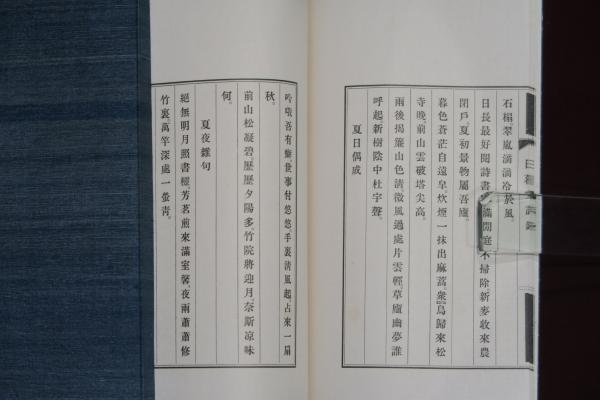 石榻翠嵐滴滴冷於風。
日長最好閱詩書。滿閒庭不掃除。新麥收來農
閉戶。夏初景物屬吾廬。
暮色蒼茫自遠皐。炊煙一抹出麻蒿。衆鳥歸來松
寺晚。前山雲破塔尖高。
雨後揭簾山色清。微風過處片雲輕。草廬幽夢誰
呼起。新樹陰中杜宇聲。
夏日偶成
吟哦吾有
世事付悠悠。手裏清風起。占來一扇
秋。
前山松凝碧。歷歷夕陽多。竹院將迎月。奈斯凉味
何。
夏夜雜句
絕無明月照書櫺。芳茗煎來滿室馨。夜雨蕭蕭修
竹裏。萬竿深處一螢靑。